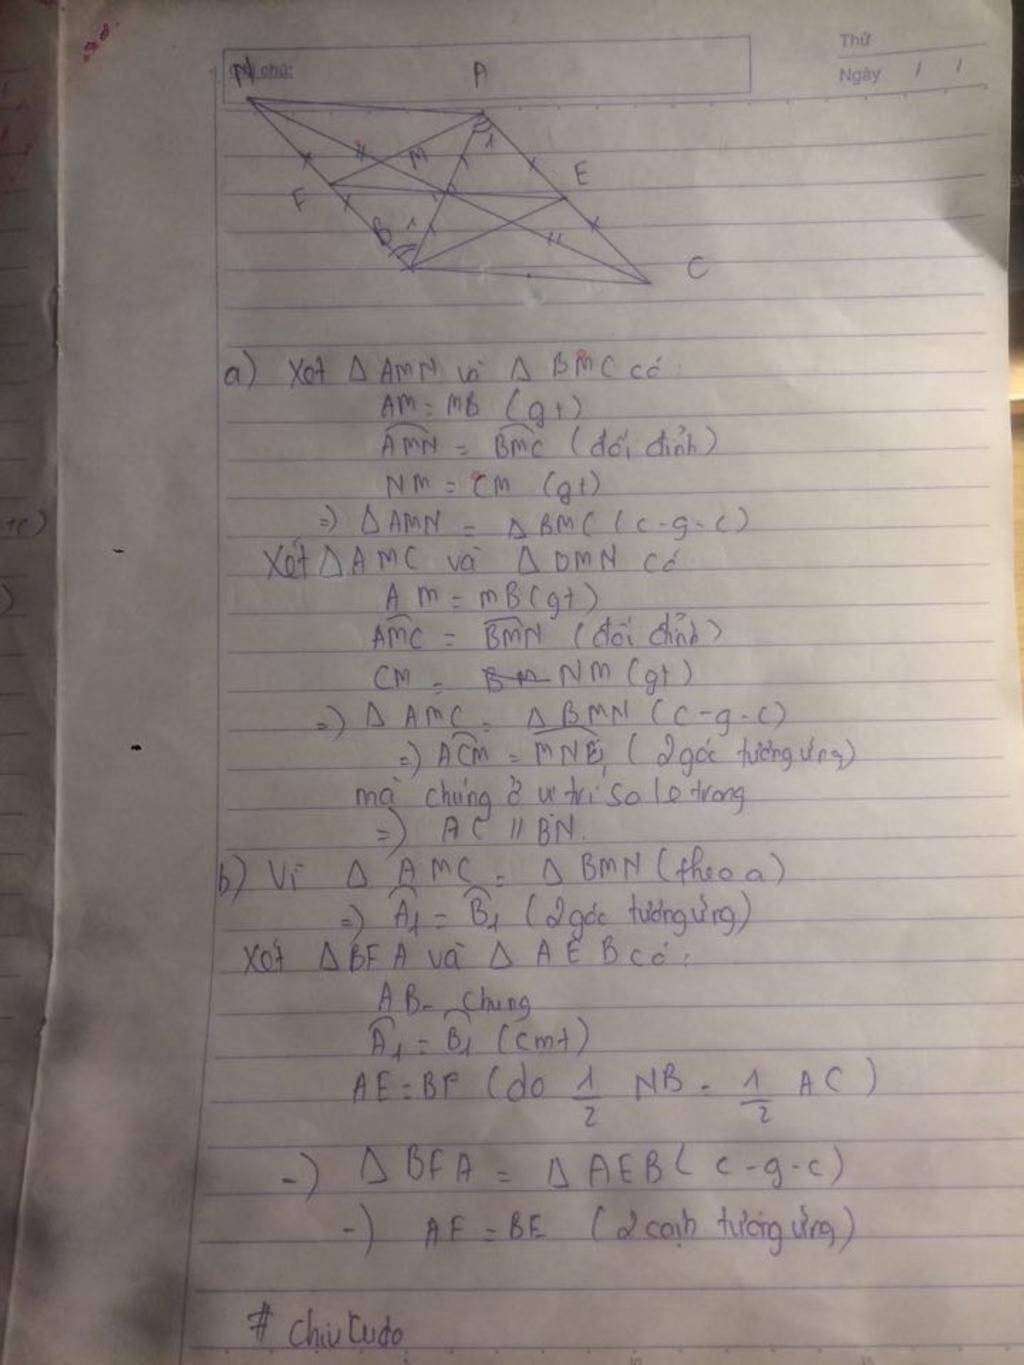 Thứ
Ngày / /
chú:
N A
M 1 E
F
B 1
C
a) Xét Δ AMN và Δ BMC có:
AM = MB (gt)
AMN = BMC (đối đỉnh)
NM = CM (gt)
=) Δ AMN = Δ BMC (c-g-c)
Xét Δ AMC và Δ DMN có
AM = MB (gt)
AMC = BMN (đối đỉnh)
CM = NM (gt)
=) Δ AMC = Δ BMN (c-g-c)
=) ACM = MNB (2 góc tương ứng)
mà chúng ở vị trí so le trong
=) AC // BN.
b) Vì Δ AMC = Δ BMN (theo a)
=) A1 = B1 (2 góc tương ứng)
Xét Δ BFA và Δ AEB có:
AB - chung
A1 = B1 (cmt)
AE = BF (do 1/2 NB = 1/2 AC)
-) Δ BFA = Δ AEB (c-g-c)
-) AF = BE (2 cạnh tương ứng)